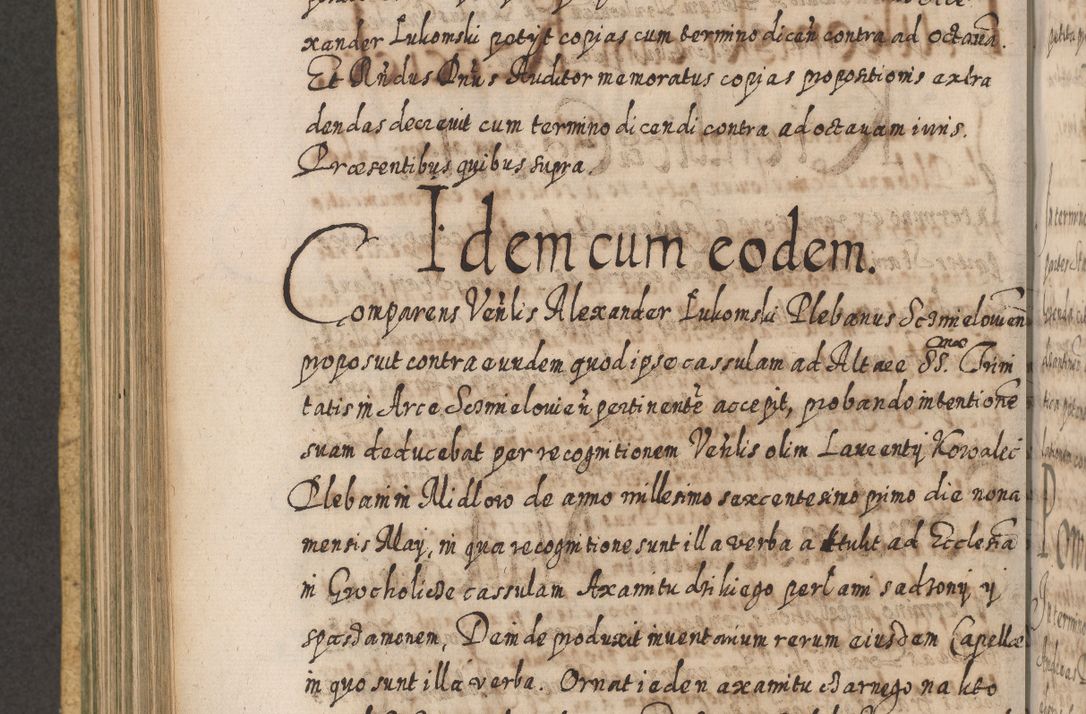 xander Łukomski petyt copias cum termino dicen̄ contra ad octauā.
Et Rn̄dus Dnūs Auditor memoratus copias propositionis extra
dendas decreuit cum termino dicendi contra ad octauam iuris.
Præsentibus quibus supra.
Idem cum eodem.
Comparens Ven̄lis Alexander Łukomski Plebanus Schmielouien̄
proposuit contra eundem quod ipse cassulam ad Altare SS.mae Trini
tatis in Arce Schmielouien̄ pertinentē accepit, probando intentionē
suam deducebat per recognitionem Ven̄lis olim Laurentij Kowalec
Plebani in Midlow de anno millesimo sexcentesimo primo die nona
mensis Maij, in qua recognitione sunt illa verba attulit ad Ecclesiā
in Grocholicze cassulam Axamitu drikiego perłami sadzony y
spasdamonem, Deinde produxit inuentarium rerum eiusdem Capellæ
in quo sunt illa verba. Ornat ieden axamitu czarnego na kto